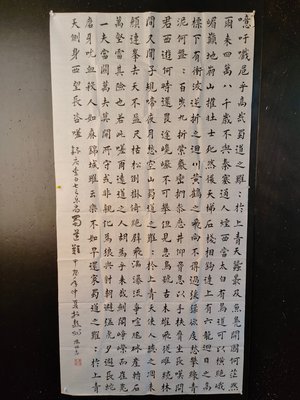 噫吁戲危乎高哉蜀道之難：於上青天蠶叢及魚鳧開國何茫然
爾來四萬八千歲不與秦塞通人煙西當太白有鳥道可以橫絕峨
嵋巔地崩山摧壯士死然後天梯石棧相鉤連上有六龍回日之高
標下有衝波逆折之迴川黃鶴之飛尚不得過猿猱欲度愁攀緣青
泥何盤：百步九折縈巖巒捫參歷井仰脅息以手撫膺坐長嘆問
君西遊何時還畏途巉巖不可攀但見悲鳥號古木雄飛雌從繞林
間又聞子規啼夜月愁空山蜀道之難：於上青天使人聽此凋朱
顏連峯去天不盈尺枯松倒掛倚絕壁飛湍瀑流爭喧豗砯崖轉石
萬壑雷其險也若此嗟爾遠道之人胡為乎來哉劍閣崢嶸而崔嵬
一夫當關萬夫莫開所守或匪親化為狼與豺朝避猛虎夕避長蛇
磨牙吮血殺人如麻錦城雖云樂不如早還家蜀道之難：於上青
天側身西望長咨嗟 錄唐李白七言樂府蜀道難